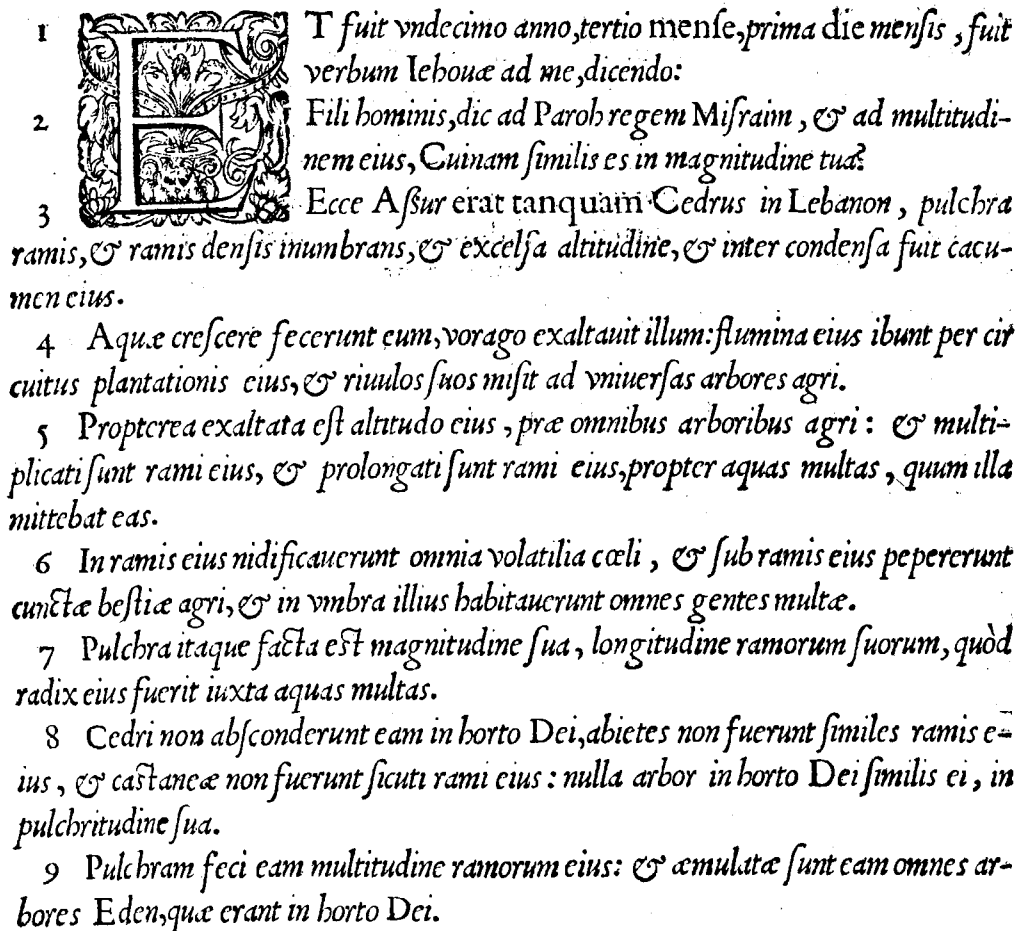 1 ET fuit vndecimo anno,tertio menſe,prima die menſis , fuit
verbum Iehouæ ad me,dicendo:
2 Fili hominis,dic ad Paroh regem Miſraim , & ad multitudi-
nem eius, Cuinam ſimilis es in magnitudine tua?
3 Ecce Aſſur erat tanquam Cedrus in Lebanon , pulchra
ramis,& ramis denſis inumbrans,& excelſa altitudine,& inter condenſa fuit cacu-
men eius.
4 Aquæ creſcere fecerunt eum,vorago exaltauit illum:flumina eius ibunt per cir
cuitus plantationis eius,& riuulos ſuos miſit ad vniuerſas arbores agri.
5 Propterea exaltata eſt altitudo eius , præ omnibus arboribus agri : & multi-
plicati ſunt rami eius, & prolongati ſunt rami eius,propter aquas multas , quum illa
mittebat eas.
6 In ramis eius nidificauerunt omnia volatilia cœli , & ſub ramis eius pepererunt
cunctæ beſtiæ agri,& in vmbra illius habitauerunt omnes gentes multæ.
7 Pulchra itaque facta eſt magnitudine ſua , longitudine ramorum ſuorum, quòd
radix eius fuerit iuxta aquas multas.
8 Cedri non abſconderunt eam in horto Dei,abietes non fuerunt ſimiles ramis e-
ius , & caſtaneæ non fuerunt ſicuti rami eius : nulla arbor in horto Dei ſimilis ei , in
pulchritudine ſua.
9 Pulchram feci eam multitudine ramorum eius: & æmulatæ ſunt eam omnes ar-
bores Eden,quæ erant in horto Dei.